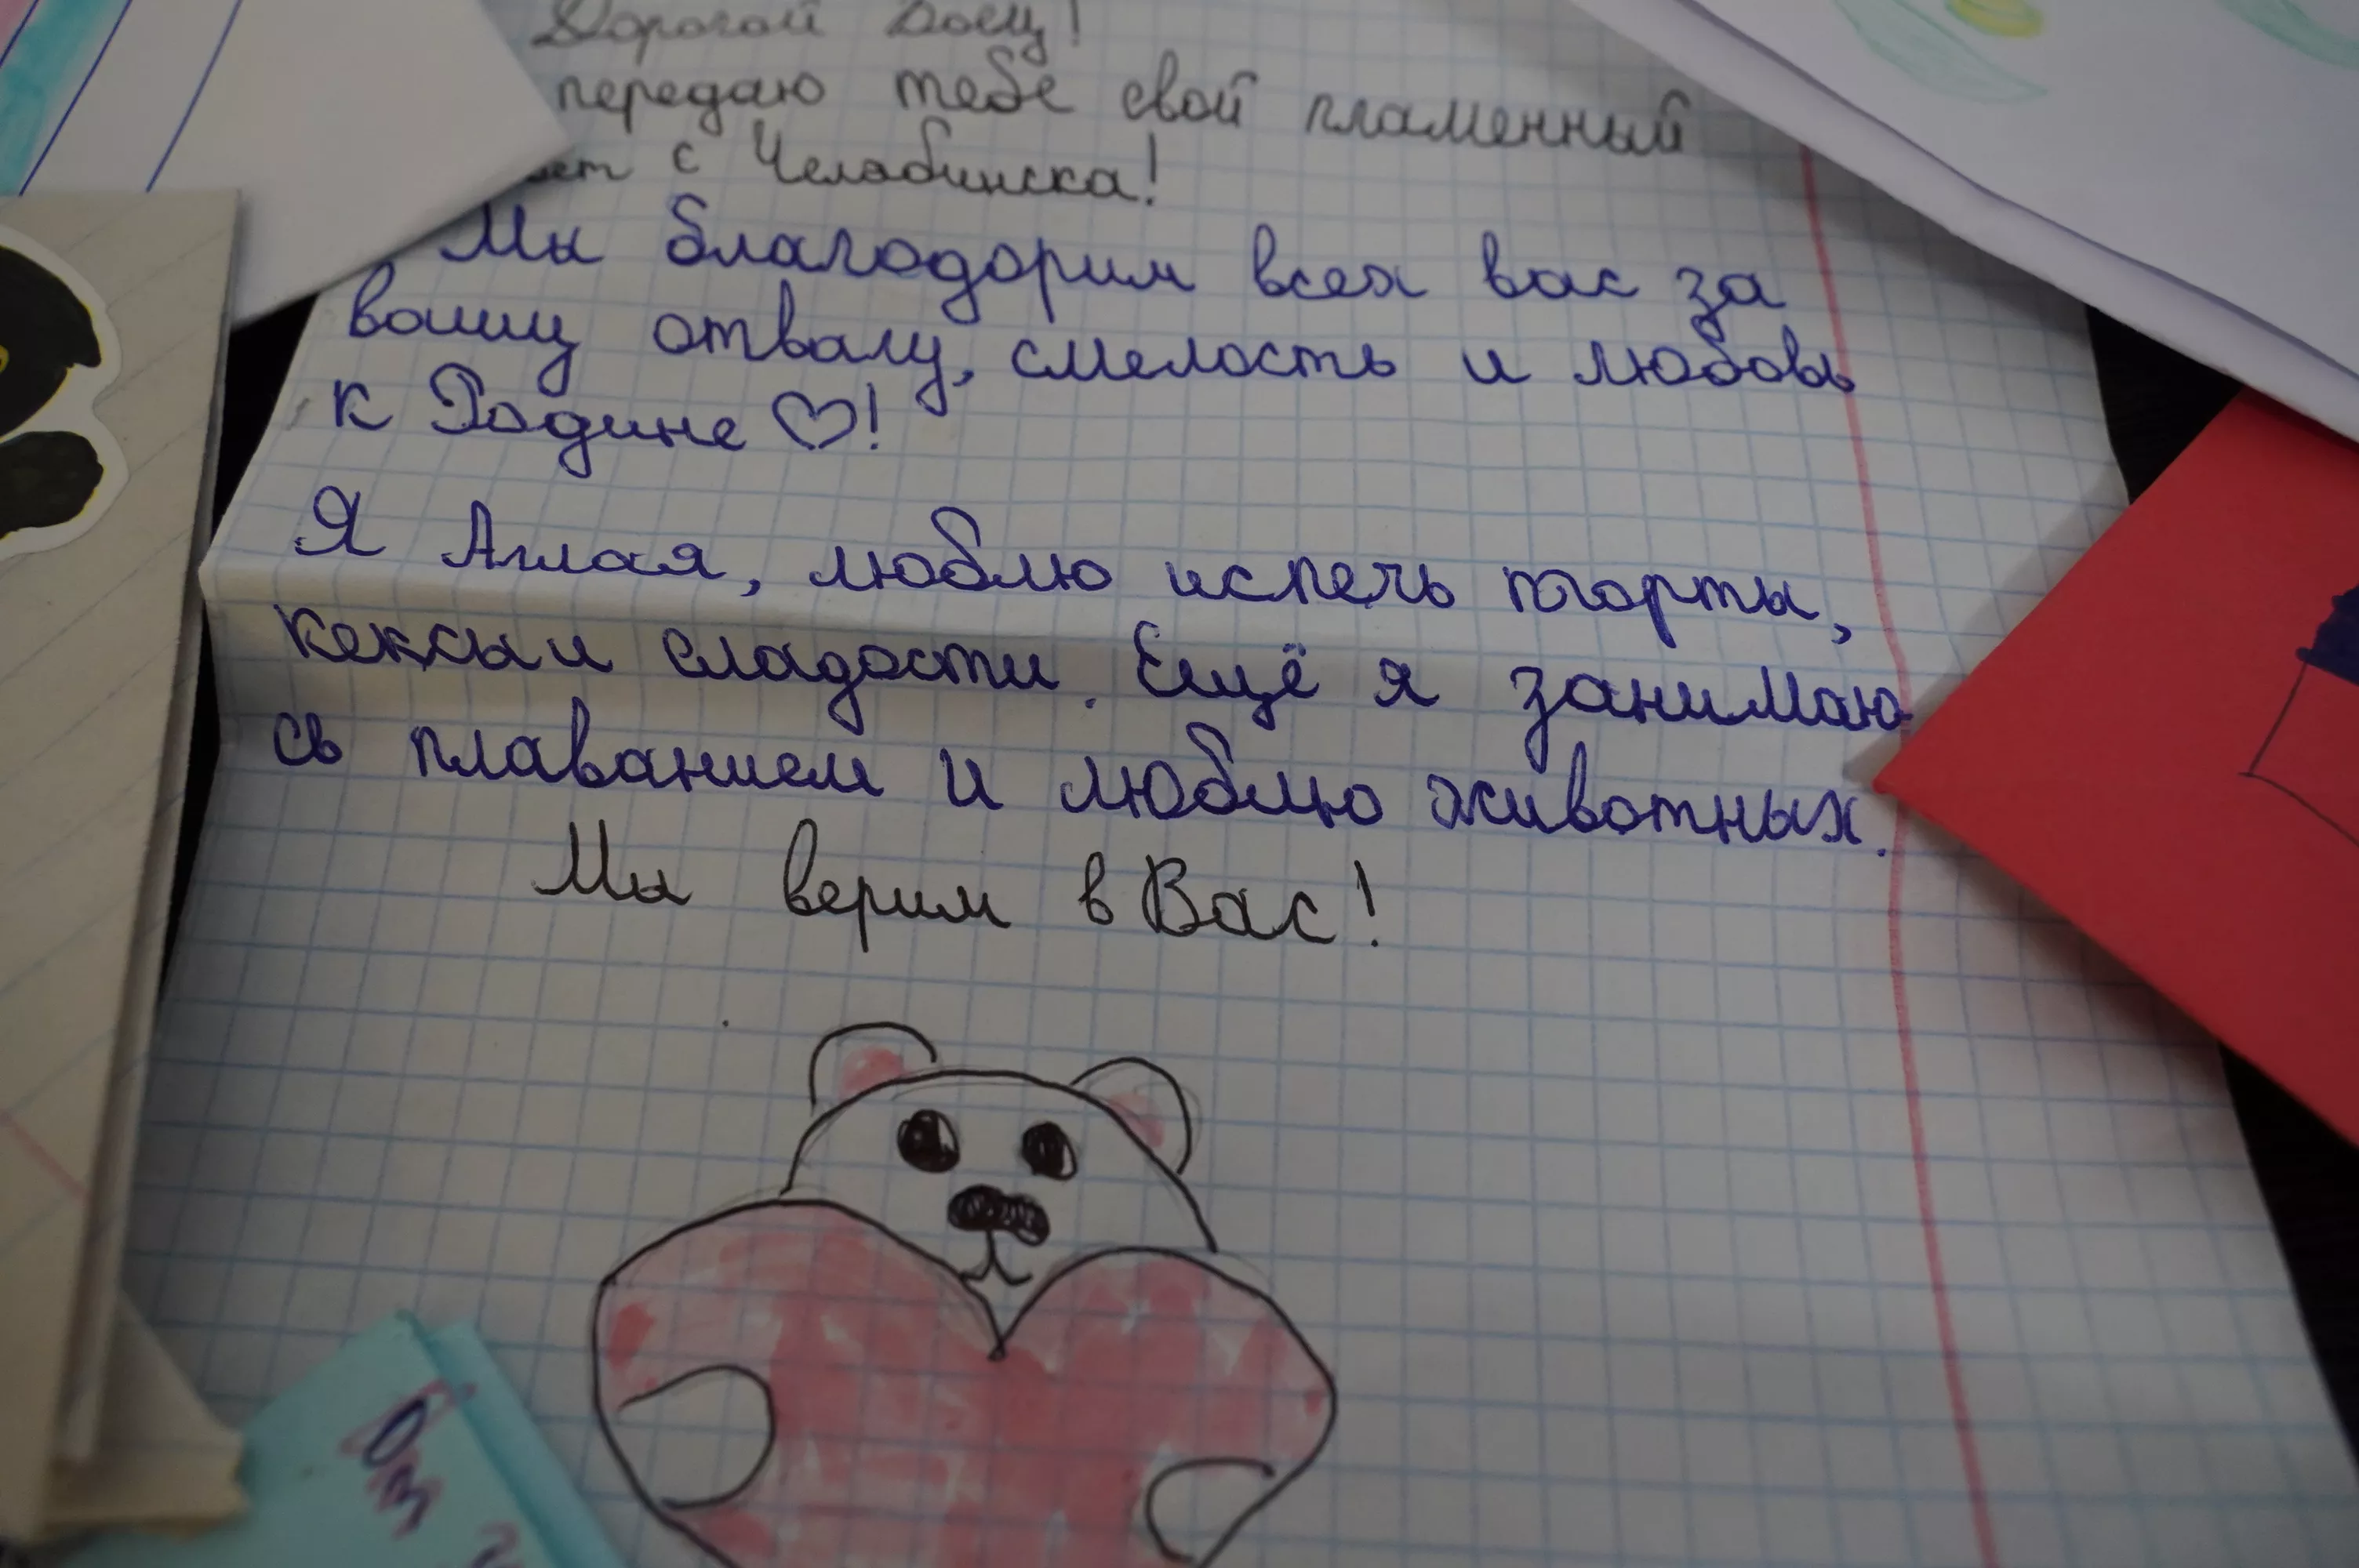 Дорогой Боец!
передаю тебе свой пламенный
ет с Челябинска!
Мы благодорим всех вас за
вашу отвагу, смелость и любовь
к Родине ♡!
Я Аглая, люблю испечь торты,
кексы и сладости. Ещё я занимаю
сь плаванием и люблю животных.
Мы верим в Вас!